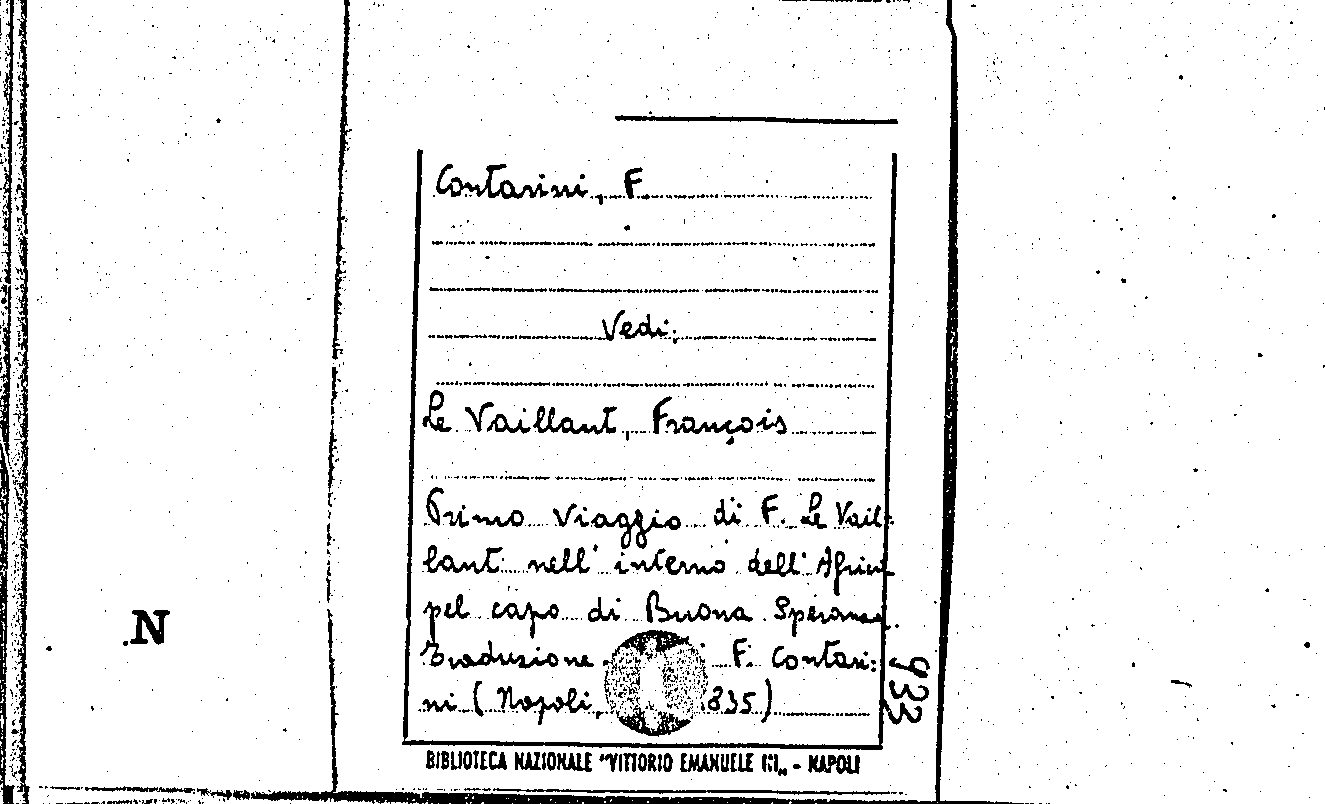 Contarini, F.
Vedi:
Le Vaillant, François
Primo Viaggio di F. Le Vail:
lant nell' interno dell' Africa
pel capo di Buona Speranza.
Traduzione F. Contari:
ni (Napoli, 835)
933
N
BIBLIOTECA NAZIONALE "VITTORIO EMANUELE III„ - NAPOLI